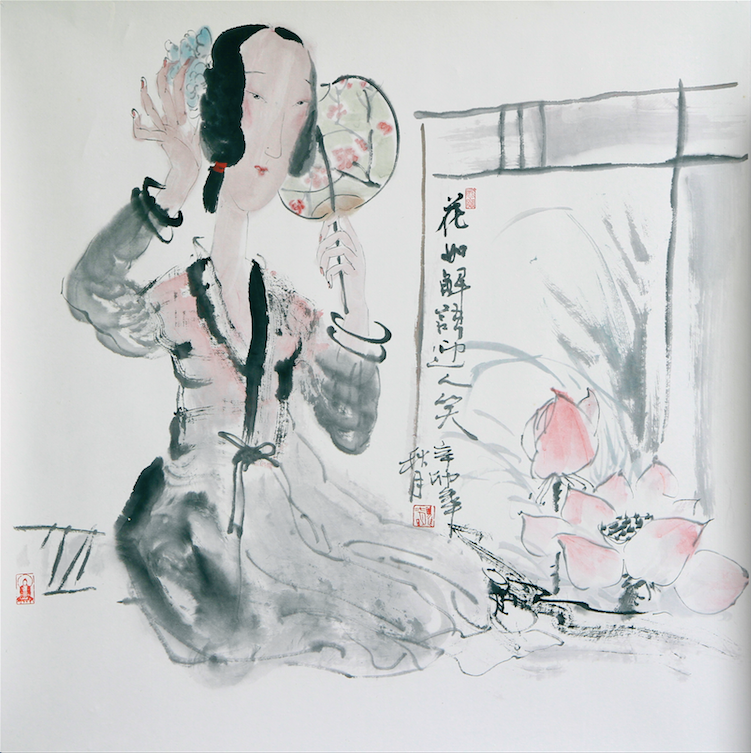 花如解語迎人笑
辛卯年
秋月